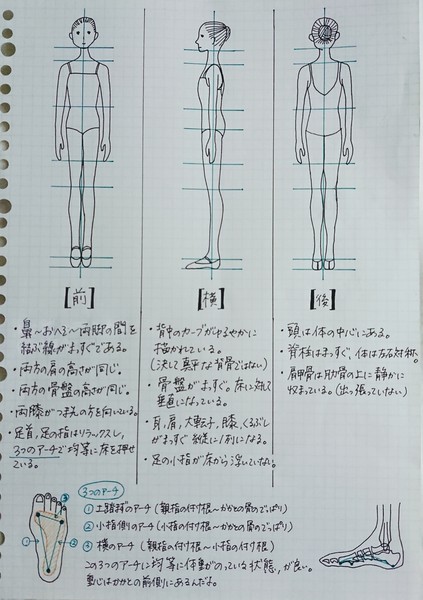 [前]
・鼻〜おへそ〜両脚の間を
結ぶ線がまっすぐである。
・両方の肩の高さが同じ。
・両方の骨盤の高さが同じ。
・両膝がつま先の方を向いている。
・足首、足の指はリラックスし、
3つのアーチで均等に床を押せ
ている。
[横]
・背中のカーブがゆるやかに
描かれている。
(決して真平な背骨ではない)
・骨盤がまっすぐ。床に対して
垂直になっている。
・耳、肩、大転子、膝、くるぶし
がまっすぐ縦に1列になる。
・足の小指が床から浮いていない。
[後]
・頭は体の中心にある。
・脊柱はまっすぐ、体は左右対称。
・肩甲骨は肋骨の上に静かに
収まっている。(出っ張っていない)
3つのアーチ
① 土踏まずのアーチ (親指の付け根〜かかとの骨のでっぱり)
② 小指側のアーチ (小指の付け根〜かかとの骨のでっぱり)
③ 横のアーチ (親指の付け根〜小指の付け根)
この3つのアーチに均等に体重がのっている状態が良い。
重心はかかとの前側にあるんだよ。
①
②
③